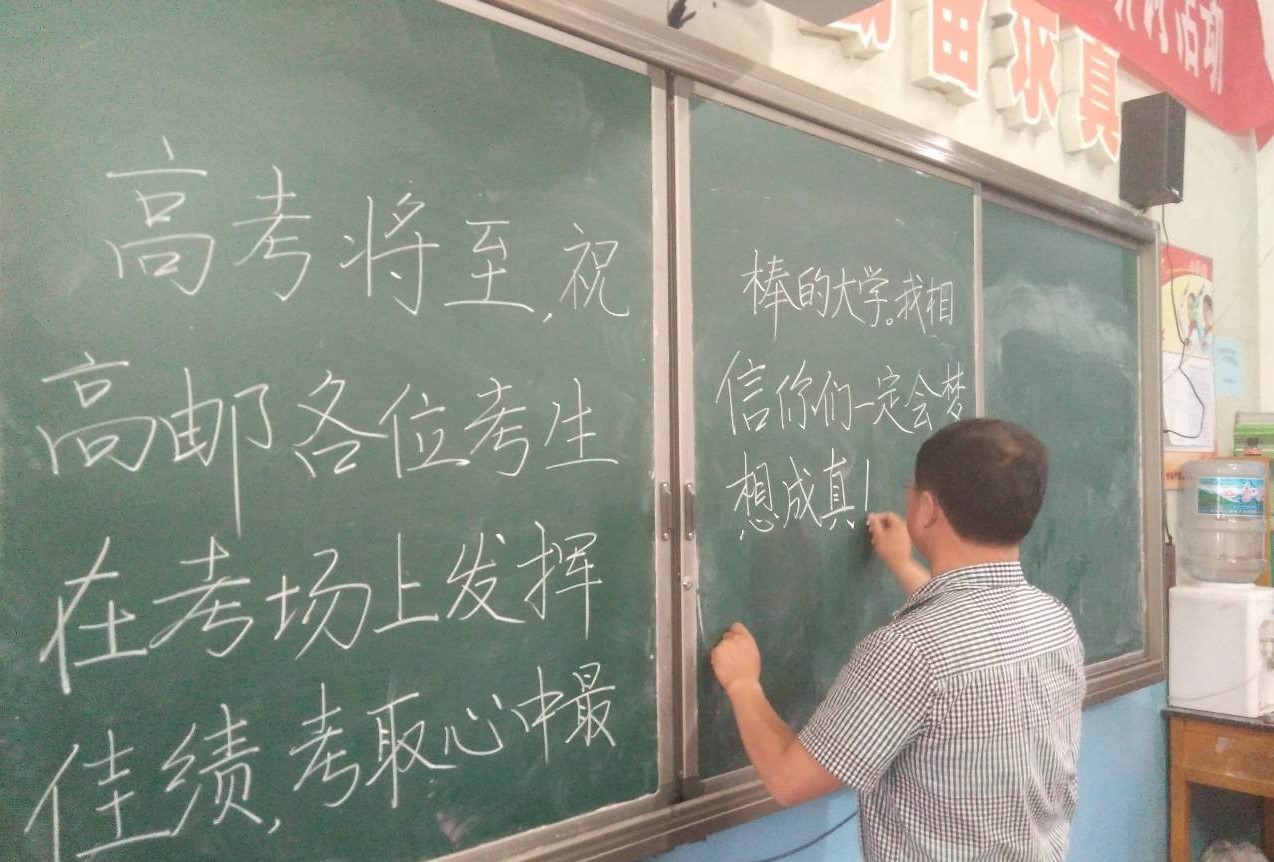 高考将至,祝
高邮各位考生
在考场上发挥
佳绩,考取心中最
棒的大学。我相
信你们一定会梦
想成真!
由求真
活动